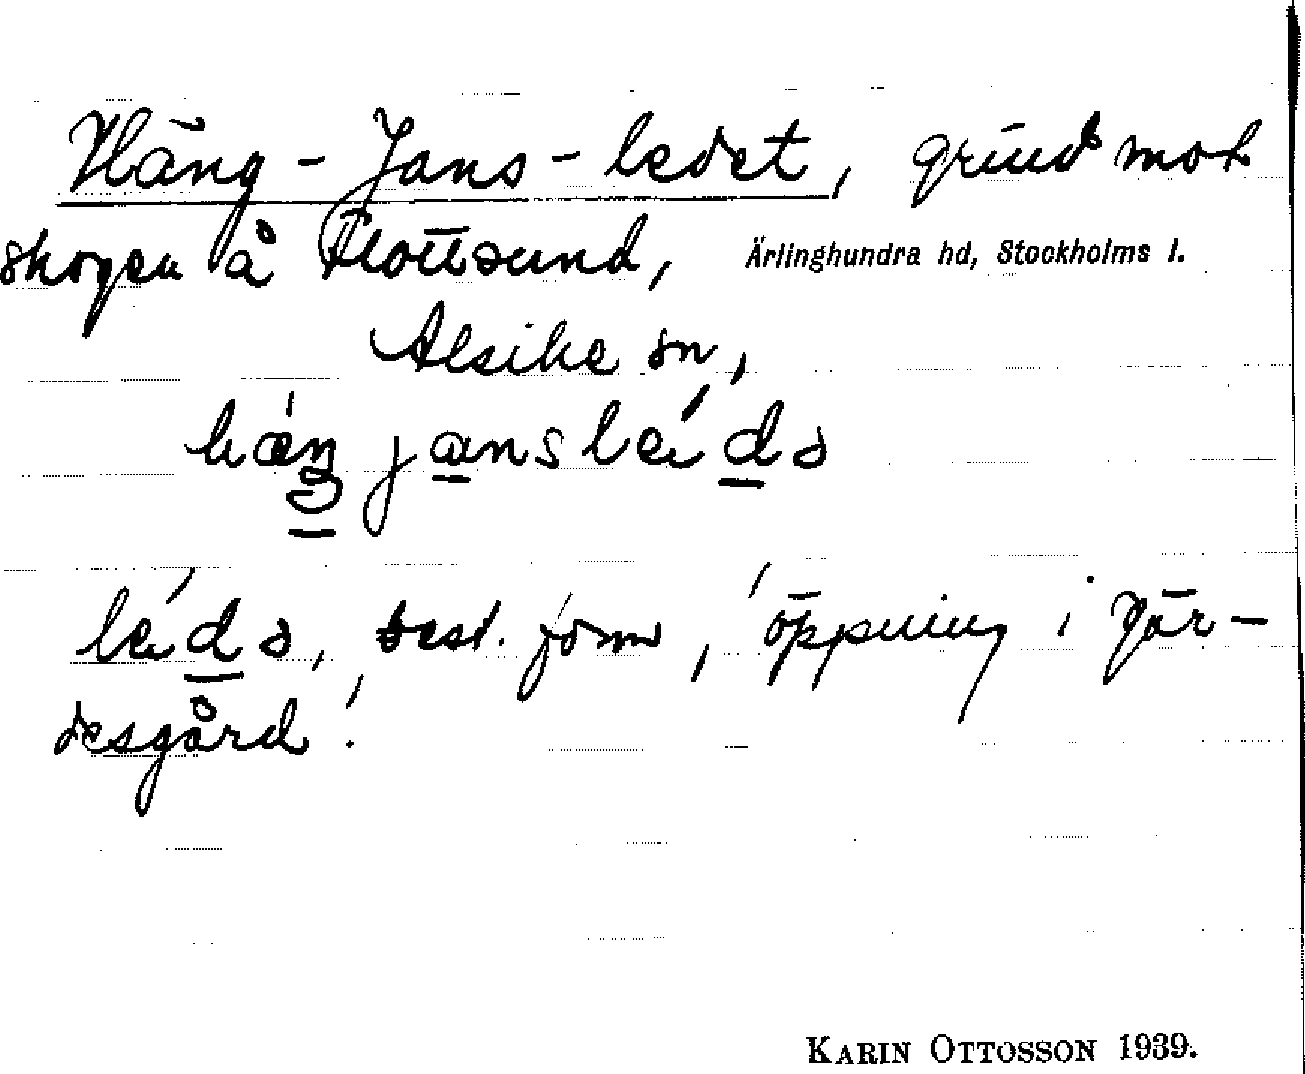 Häng-Jans-ledet, grind mot
skogen å Flottsund, Ärlinghundra hd, Stockholms l.
Alsike sn,
hæŋ jansleds
leds, best. form, 'öppning i gär-
desgård'.
KARIN OTTOSSON 1939.